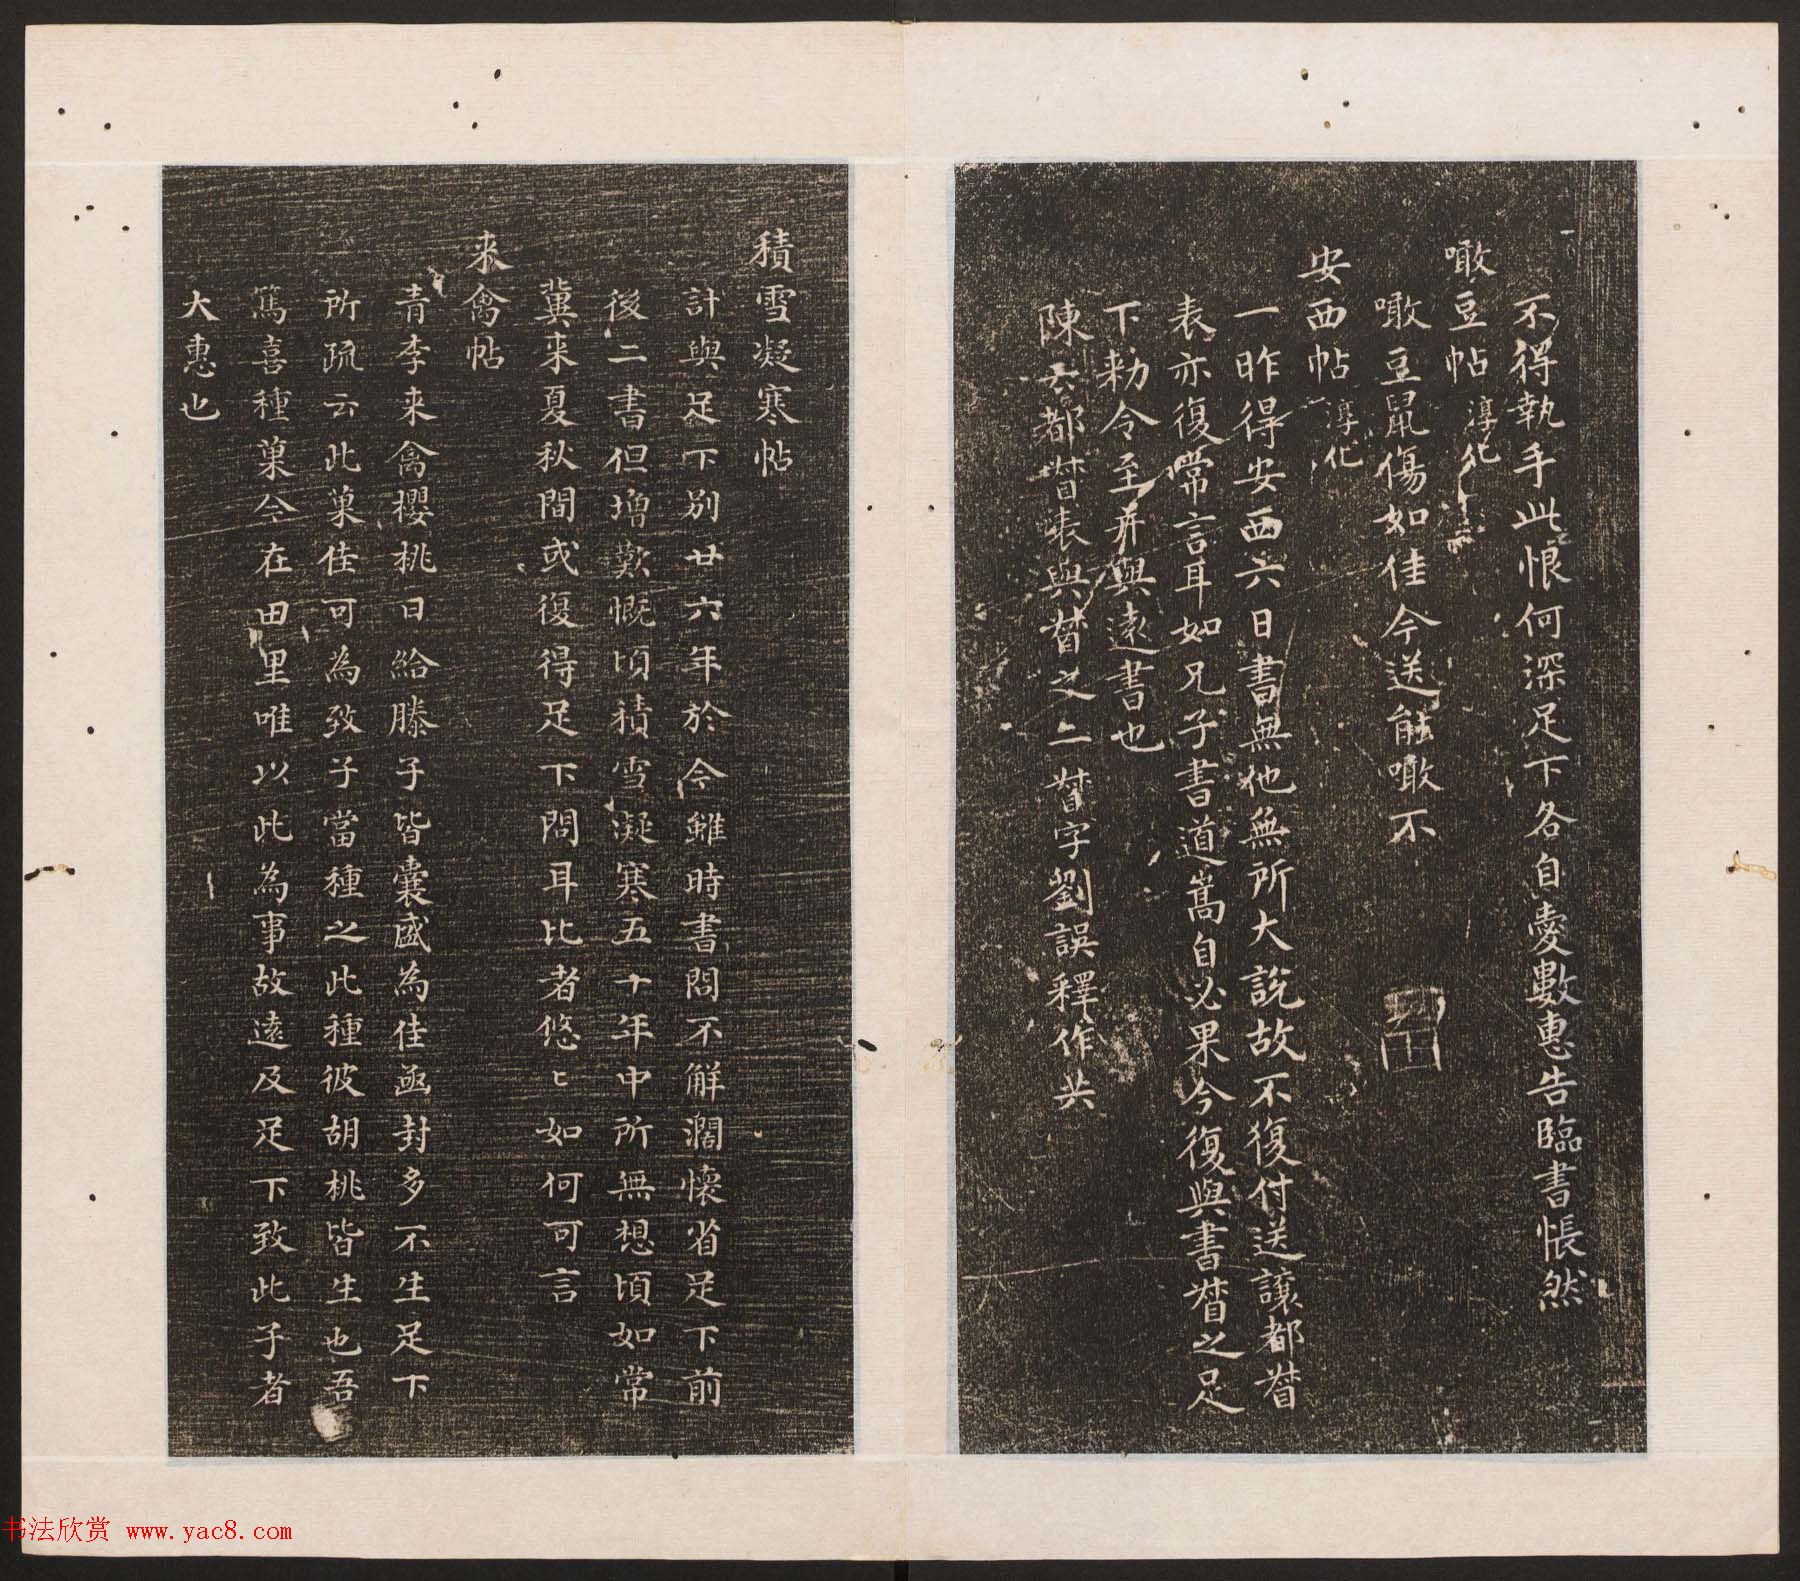 不得執手此恨何深足下各自愛數惠告臨書悵然
噉豆帖 淳化
噉豆鼠傷如佳今送能噉不
安西帖 淳化
一昨得安西六日書無他無所大說故不復付送讓都督
表亦復常言耳如兄子書道嵩自必果今復與書督之足
下勑令至并與遠書也
陳云都督表與督之二督字劉誤釋作共
積雪凝寒帖
計與足下別廿六年於今雖時書問不解濶懷省足下前
後二書但增歎慨頃積雪凝寒五十年中所無想頃如常
冀来夏秋間或復得足下問耳比者悠〻如何可言
来禽帖
青李来禽櫻桃日給滕子皆囊盛為佳函封多不生足下
所疏云此菓佳可為致子當種之此種彼胡桃皆生也吾
篤喜種菓今在田里唯以此為事故遠及足下致此子者
大惠也
书法欣赏 www.yac8.com